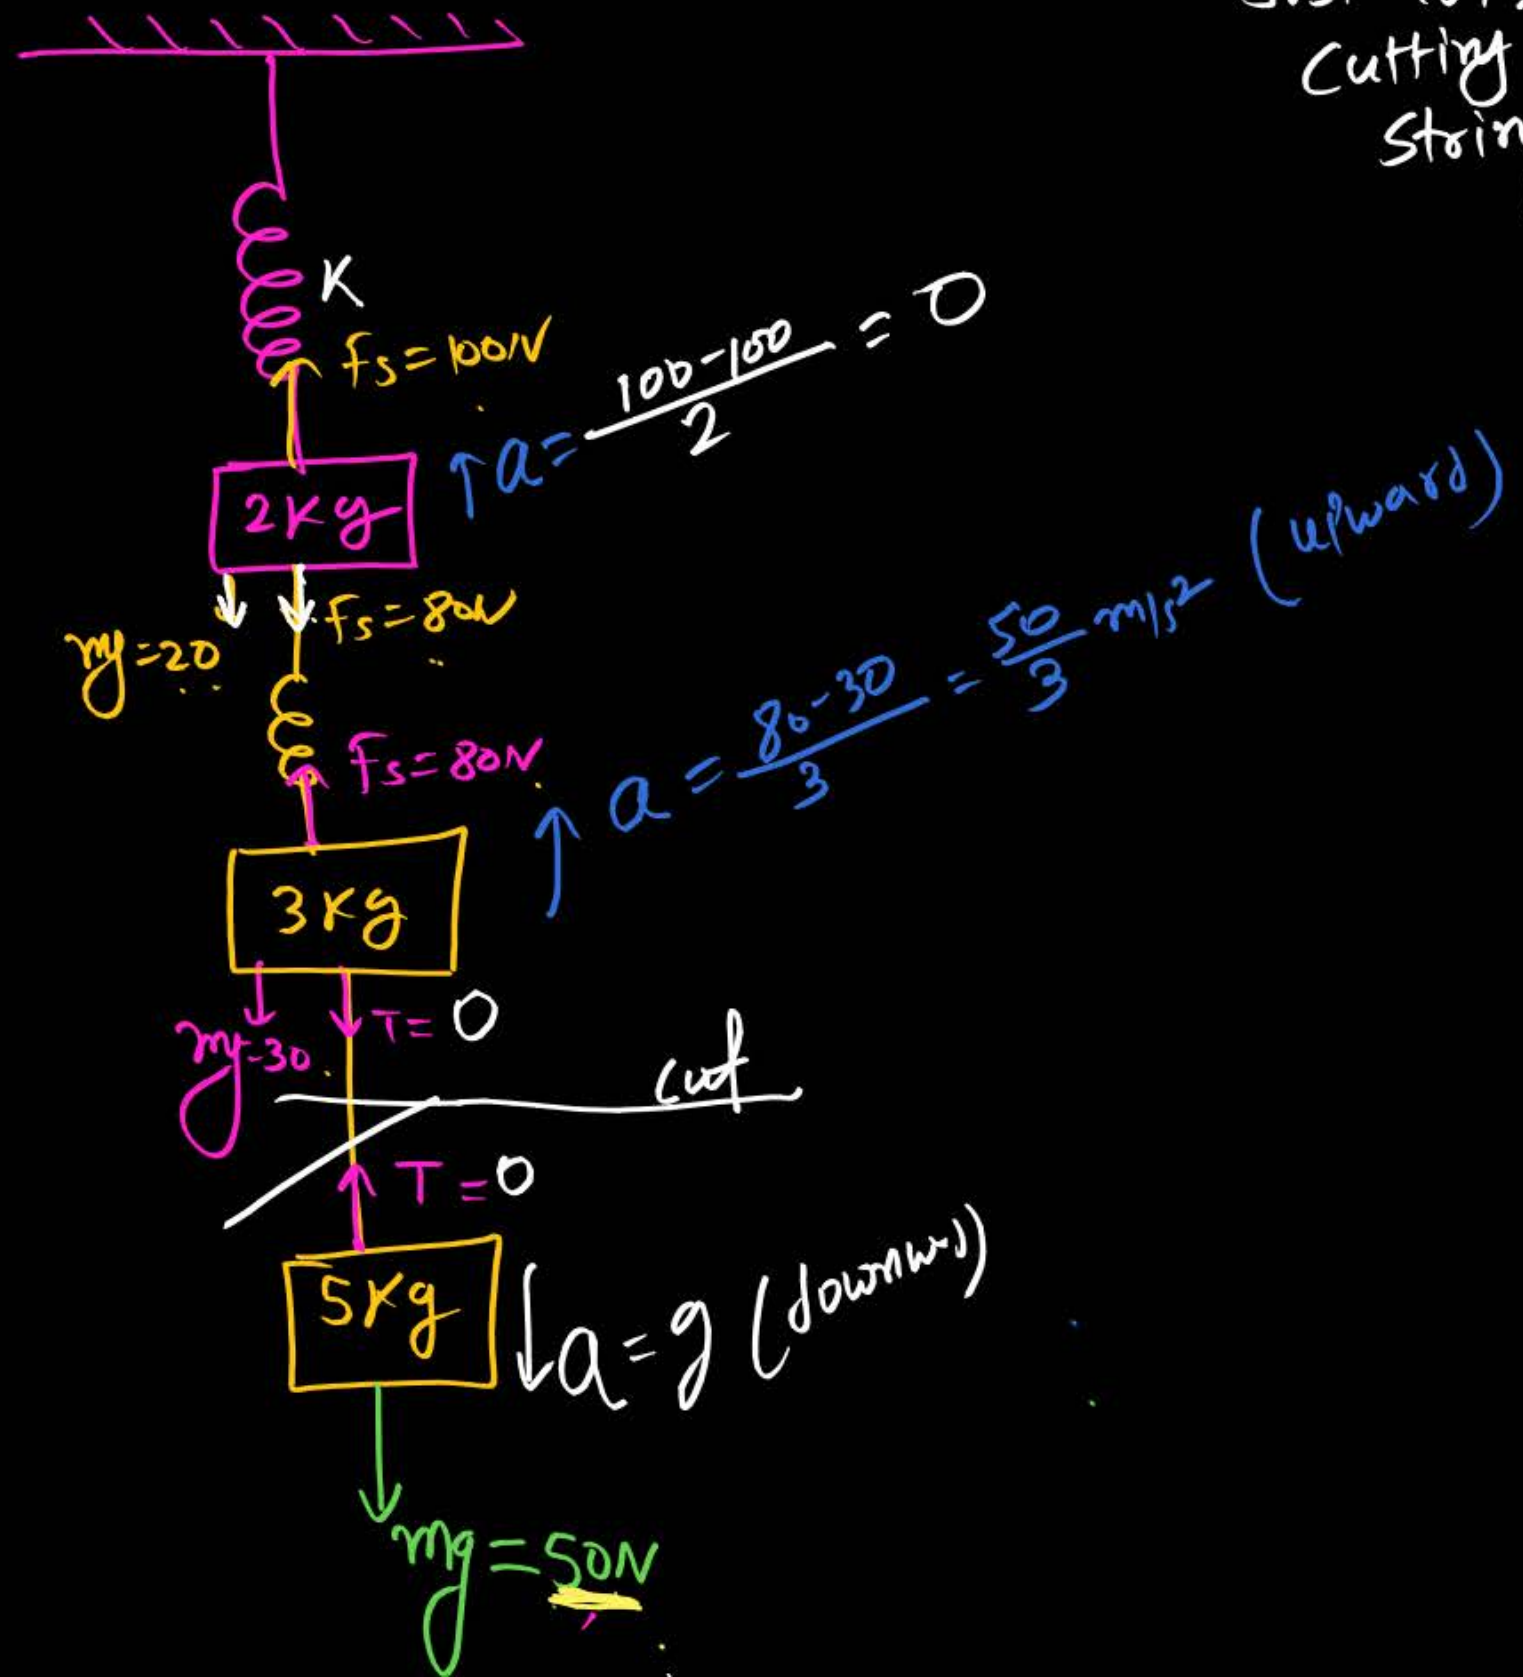 Cutting
K
fs=100N
↑a= 100-100/2 = 0
2Kg
mg=20
fs=80N
fs=80N
↑ a = 80-30/3 = 50/3 m/s² (upward)
3Kg
mg=30
T= 0
cut
T=0
5Kg
↓a=g
mg=50N